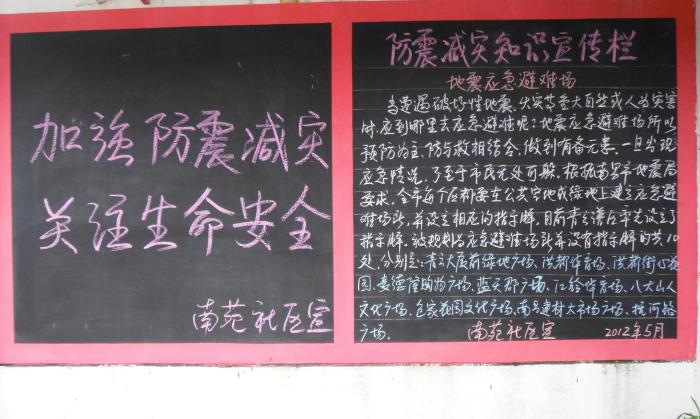 加强防震减灾
关注生命安全
南苑社区宣
防震减灾知识宣传栏
地震应急避难场
当遭遇破坏性地震、火灾等重大自然或人为灾害
时,应到哪里去应急避难呢?地震应急避难场所以
预防为主,防与救相结合,做到有备无患,一旦发现
应急情况,了至于市民无处可躲。根据南昌市地震局
要求,全市每个区都要在公共空地或绿地上建立应急避
难场所,并设立相应的指示牌,目前青云谱区率先设立了
指示牌。被规划为应急避难场所并设有指示牌的共10
处,分别是:青云大厦前绿地广场、洪都体育场、洪都街心花
园、麦德隆购物广场、蓝天郡广场、江铃体育场、八大山人
文化广场、包家花园文化广场、南昌建材大市场广场、抚河铭
广场.
南苑社区宣 2012年5月